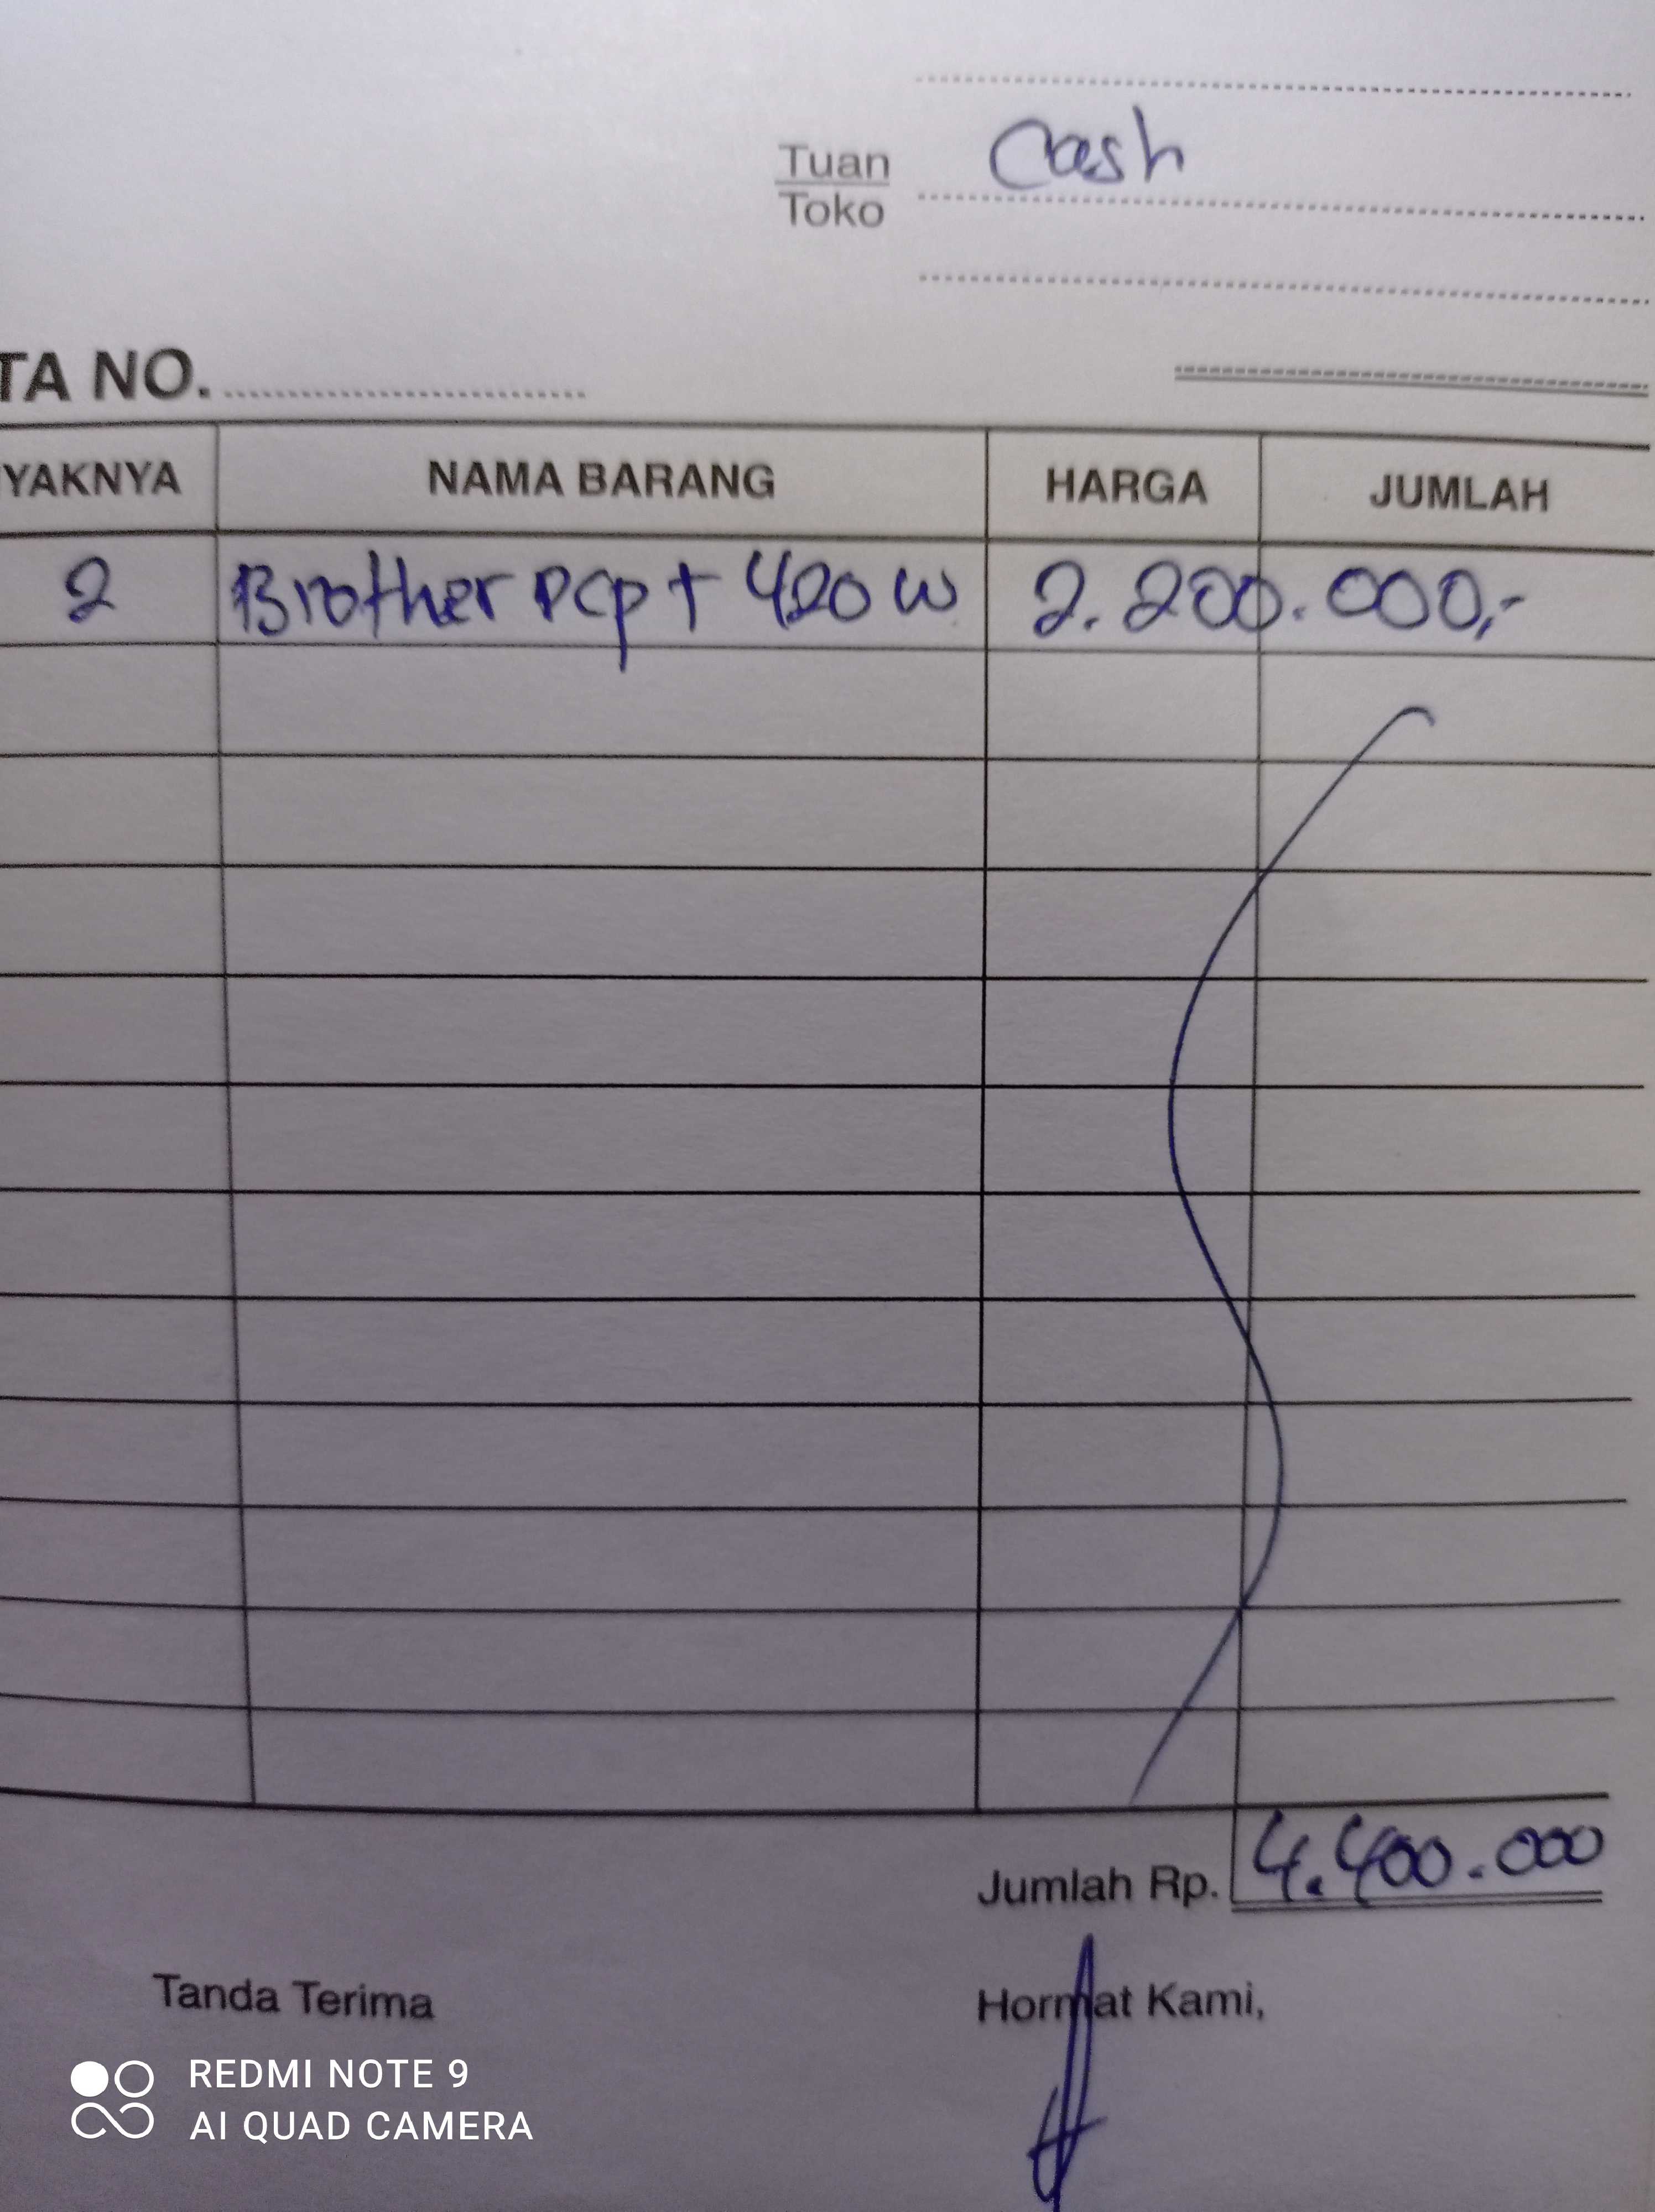 Tuan Cash
Toko
TA NO.
YAKNYA NAMA BARANG HARGA JUMLAH
2 Brother DCP T 420 W 2.200.000,-
Jumlah Rp. 4.400.000
Tanda Terima Hormat Kami,
REDMI NOTE 9
AI QUAD CAMERA